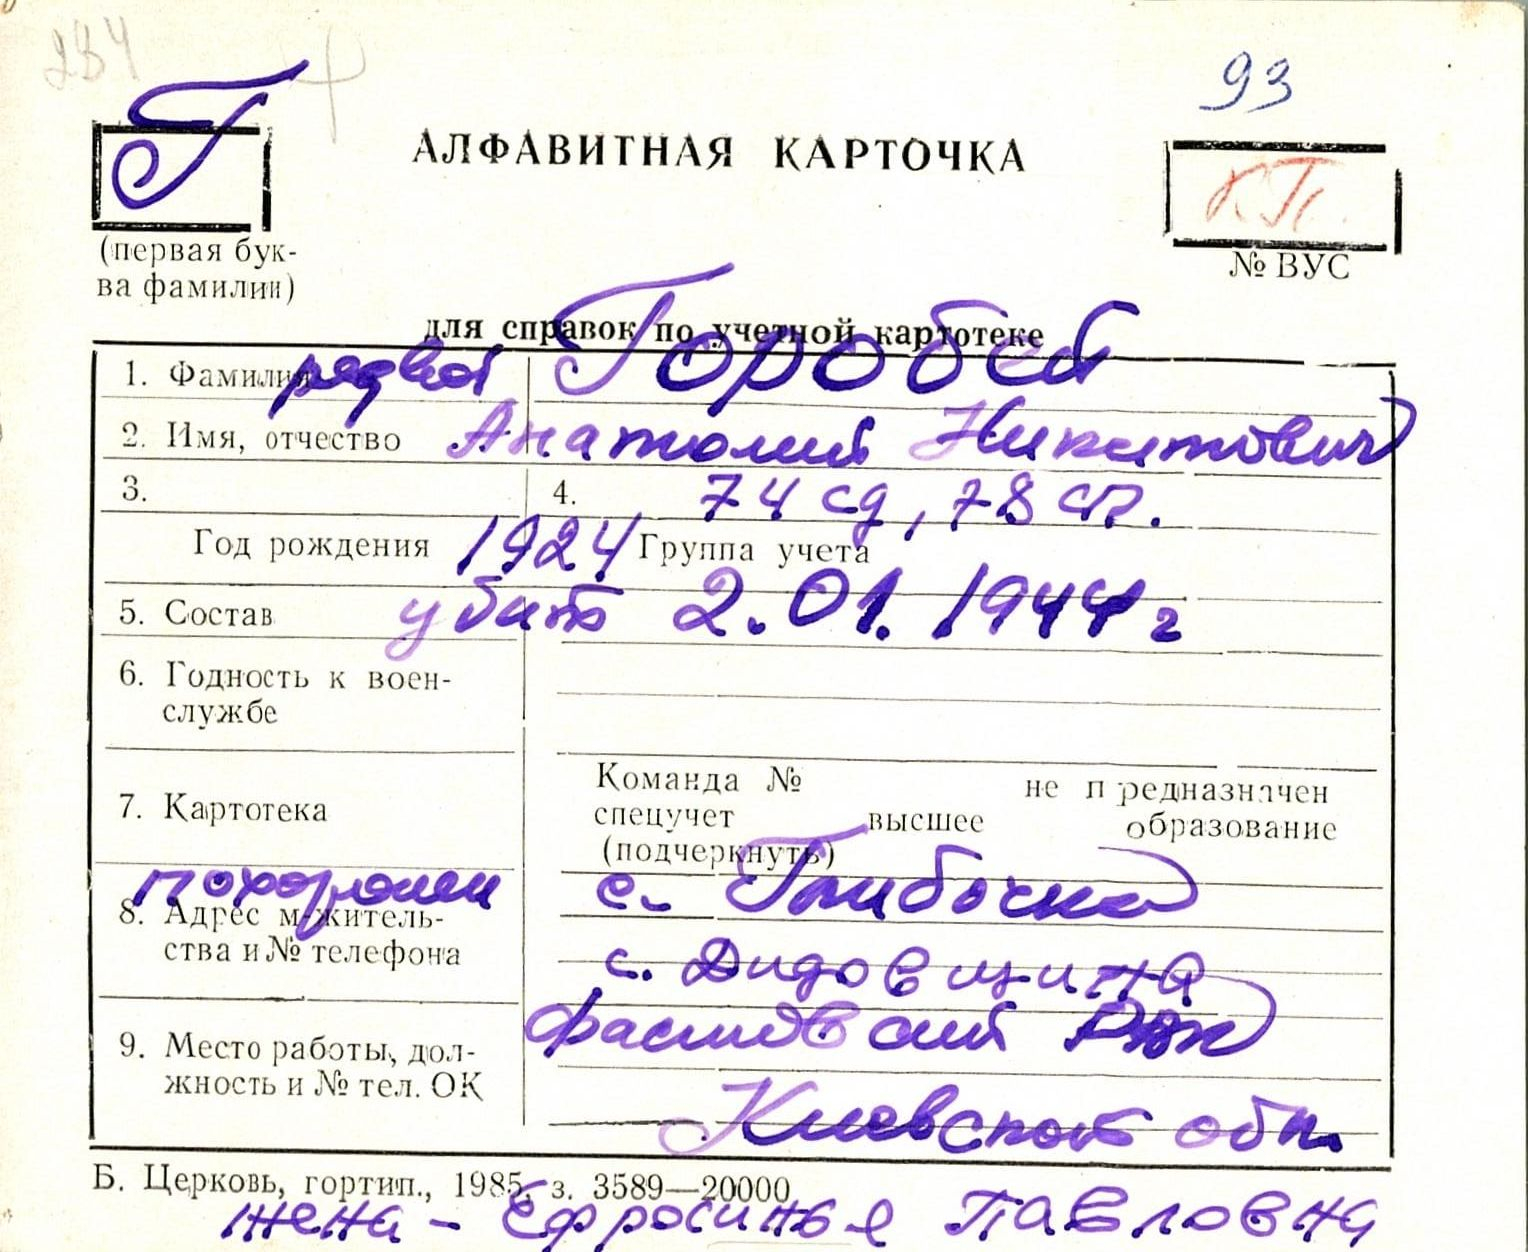 234
93
Г
АЛФАВИТНАЯ КАРТОЧКА
КП.
(первая бук-
ва фамилии)
№ ВУС
для справок по учетной картотеке
1. Фамилия рядвой Горобей
2. Имя, отчество Анатолий Никитович
3. 4. 74 сд, 78 сп.
Год рождения 1924 Группа учета
5. Состав убит 2.01.1944 г
6. Годность к воен-
службе
Команда № не предназначен
7. Картотека спецучет высшее образование
(подчеркнуть)
похоронен с.
8. Адрес м-житель-
ства и № телефона с. Дидовщина
Фастовский р-н
9. Место работы, дол-
жность и № тел. ОК
Киевской обл.
Б. Церковь, гортип., 1985, з. 3589—20000
жена - Ефросинья Павловна